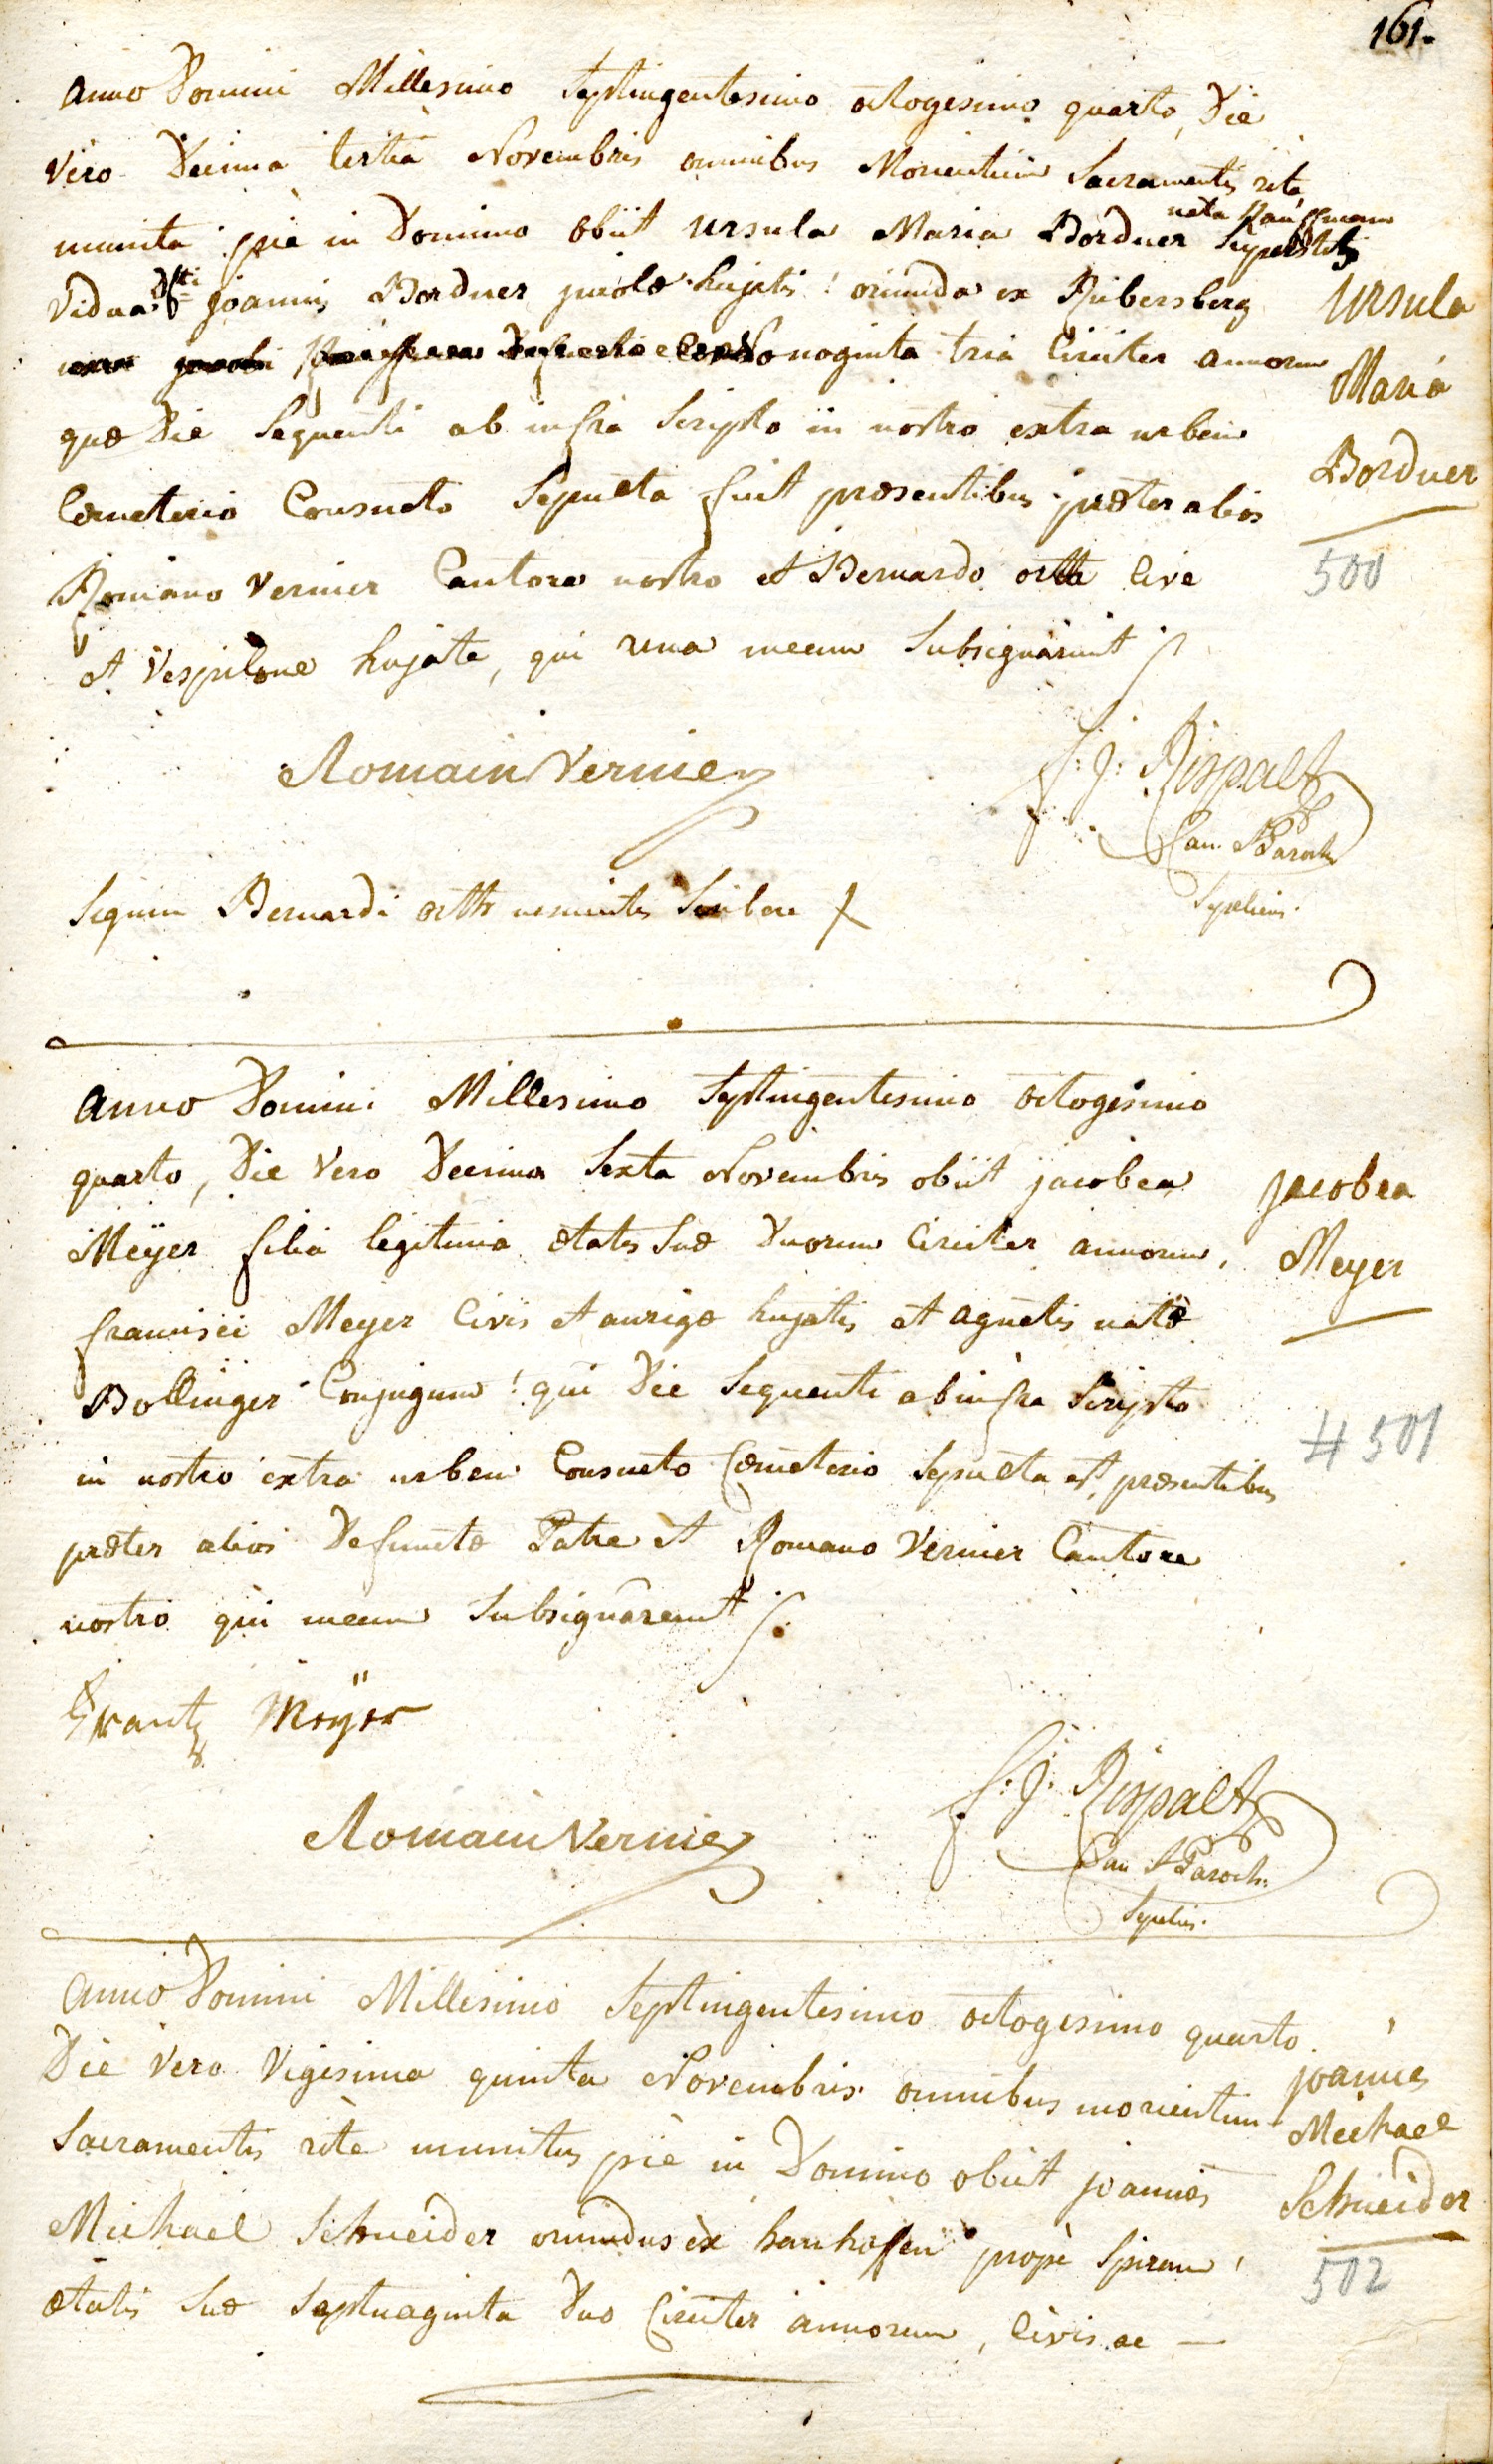 161.
Anno Domini Millesimo Septingentesimo octogesimo quarto, Die
Vero Decima tertia Novembris omnibus Morientium Sacramentis rite
nata Kauffmann
munita piè in Domino obiit Ursula Maria Bordner Superstes
Vidua Dfti Joannis Bordner incolæ hujatis! oriunda ex Rubersberg
Nonoginta tria Circiter annorum
quæ Die Sequenti ab infra Scripto in nostro extra urbem
Cœmeterio Consueto Sepulta fuit præsentibus præter alios
Romano Vernier Cantore nostro et Bernardo orth Cive
et Vespilone hujate, qui una mecum Subsignarunt
Ursula
Maria
Bordner
500
Romain Vernier
f: J: Rispalt
Can. & Paroch
Sepeliens.
Signum Bernardi orth nescientis Scribere X
Anno Domini Millesimo Septingentesimo octogesimo
quarto, Die Vero Decima Sexta Novembris obiit jacobea
Meÿer filia legitima ætatis Suæ Duorum Circiter annorum,
francisci Meyer Civis et aurigæ hujatis et agnetis natæ
Bollinger Conjugum! qui Die Sequenti ab infra Scripto
in nostro extra urbem Consueto Cœmeterio Sepulta est, præsentibus
præter alios Defunctæ Patre et Romano Vernier Cantore
nostro qui mecum Subsignarunt
jacobea
Meyer
# 501
Frantz Meÿer
Romain Vernier
f. J. Rispalt
Can & Paroch.
Sepeliens.
Anno Domini Millesimo Septingentesimo octogesimo quarto.
Die Vero Vigesima quinta Novembris omnibus morientium
Sacramentis ritè munitus piè in Domino obiit joannes
Michael Schneider oriundus èx hanhofen propè Spiram,
ætatis Suæ Septuaginta Duo Circiter annorum, Civis ac —
joannes
Michael
Schneider
502